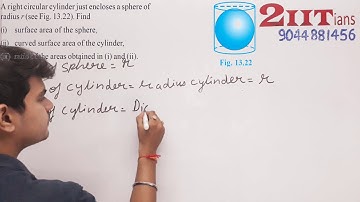 A right circular cylinder just encloses a sphere of
radius r (see Fig. 13.22). Find
(i) surface area of the sphere,
(ii) curved surface area of the cylinder,
ratio of the areas obtained in (i) and (ii).
Fig. 13.22
2IITians
9044881456
of sphere = r
of cylinder = radius cylinder = r
of cylinder = Di